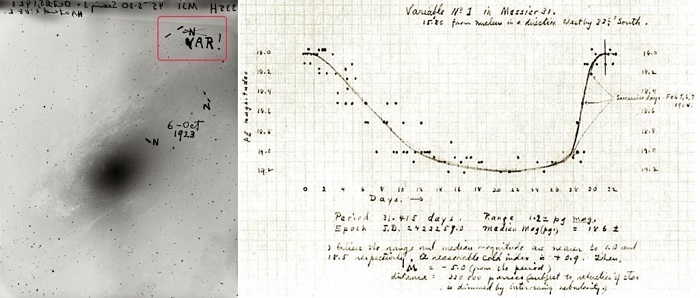 N
VAR!
N
6-Oct
1923
N
Variable No 1 in Messier 31.
from nucleus in a direction
South.
18.0
18.2
18.4
18.6
18.8
19.0
19.2
PE magnitudes
18.0
18.2
18.4
18.6
18.8
19.0
19.2
Successive days. Feb 5, 6, 7
1924
0 2 4 6 8 10 12 14 16 18 20 22 24 26 28 30 32
Days. →
Period 31.415 days. Range 1.2± pg mag.
Epoch J.D. Median Mag(pg) = 18.6 ±
I believe the range and median magnitude are nearer to 1.0 and
18.5 respectively. A reasonable Cold index is + 0.9. Then,
M = -5.0 (from the period)
distance = parsecs (subject to reduction if star
is dimmed by intervening nebulosity).